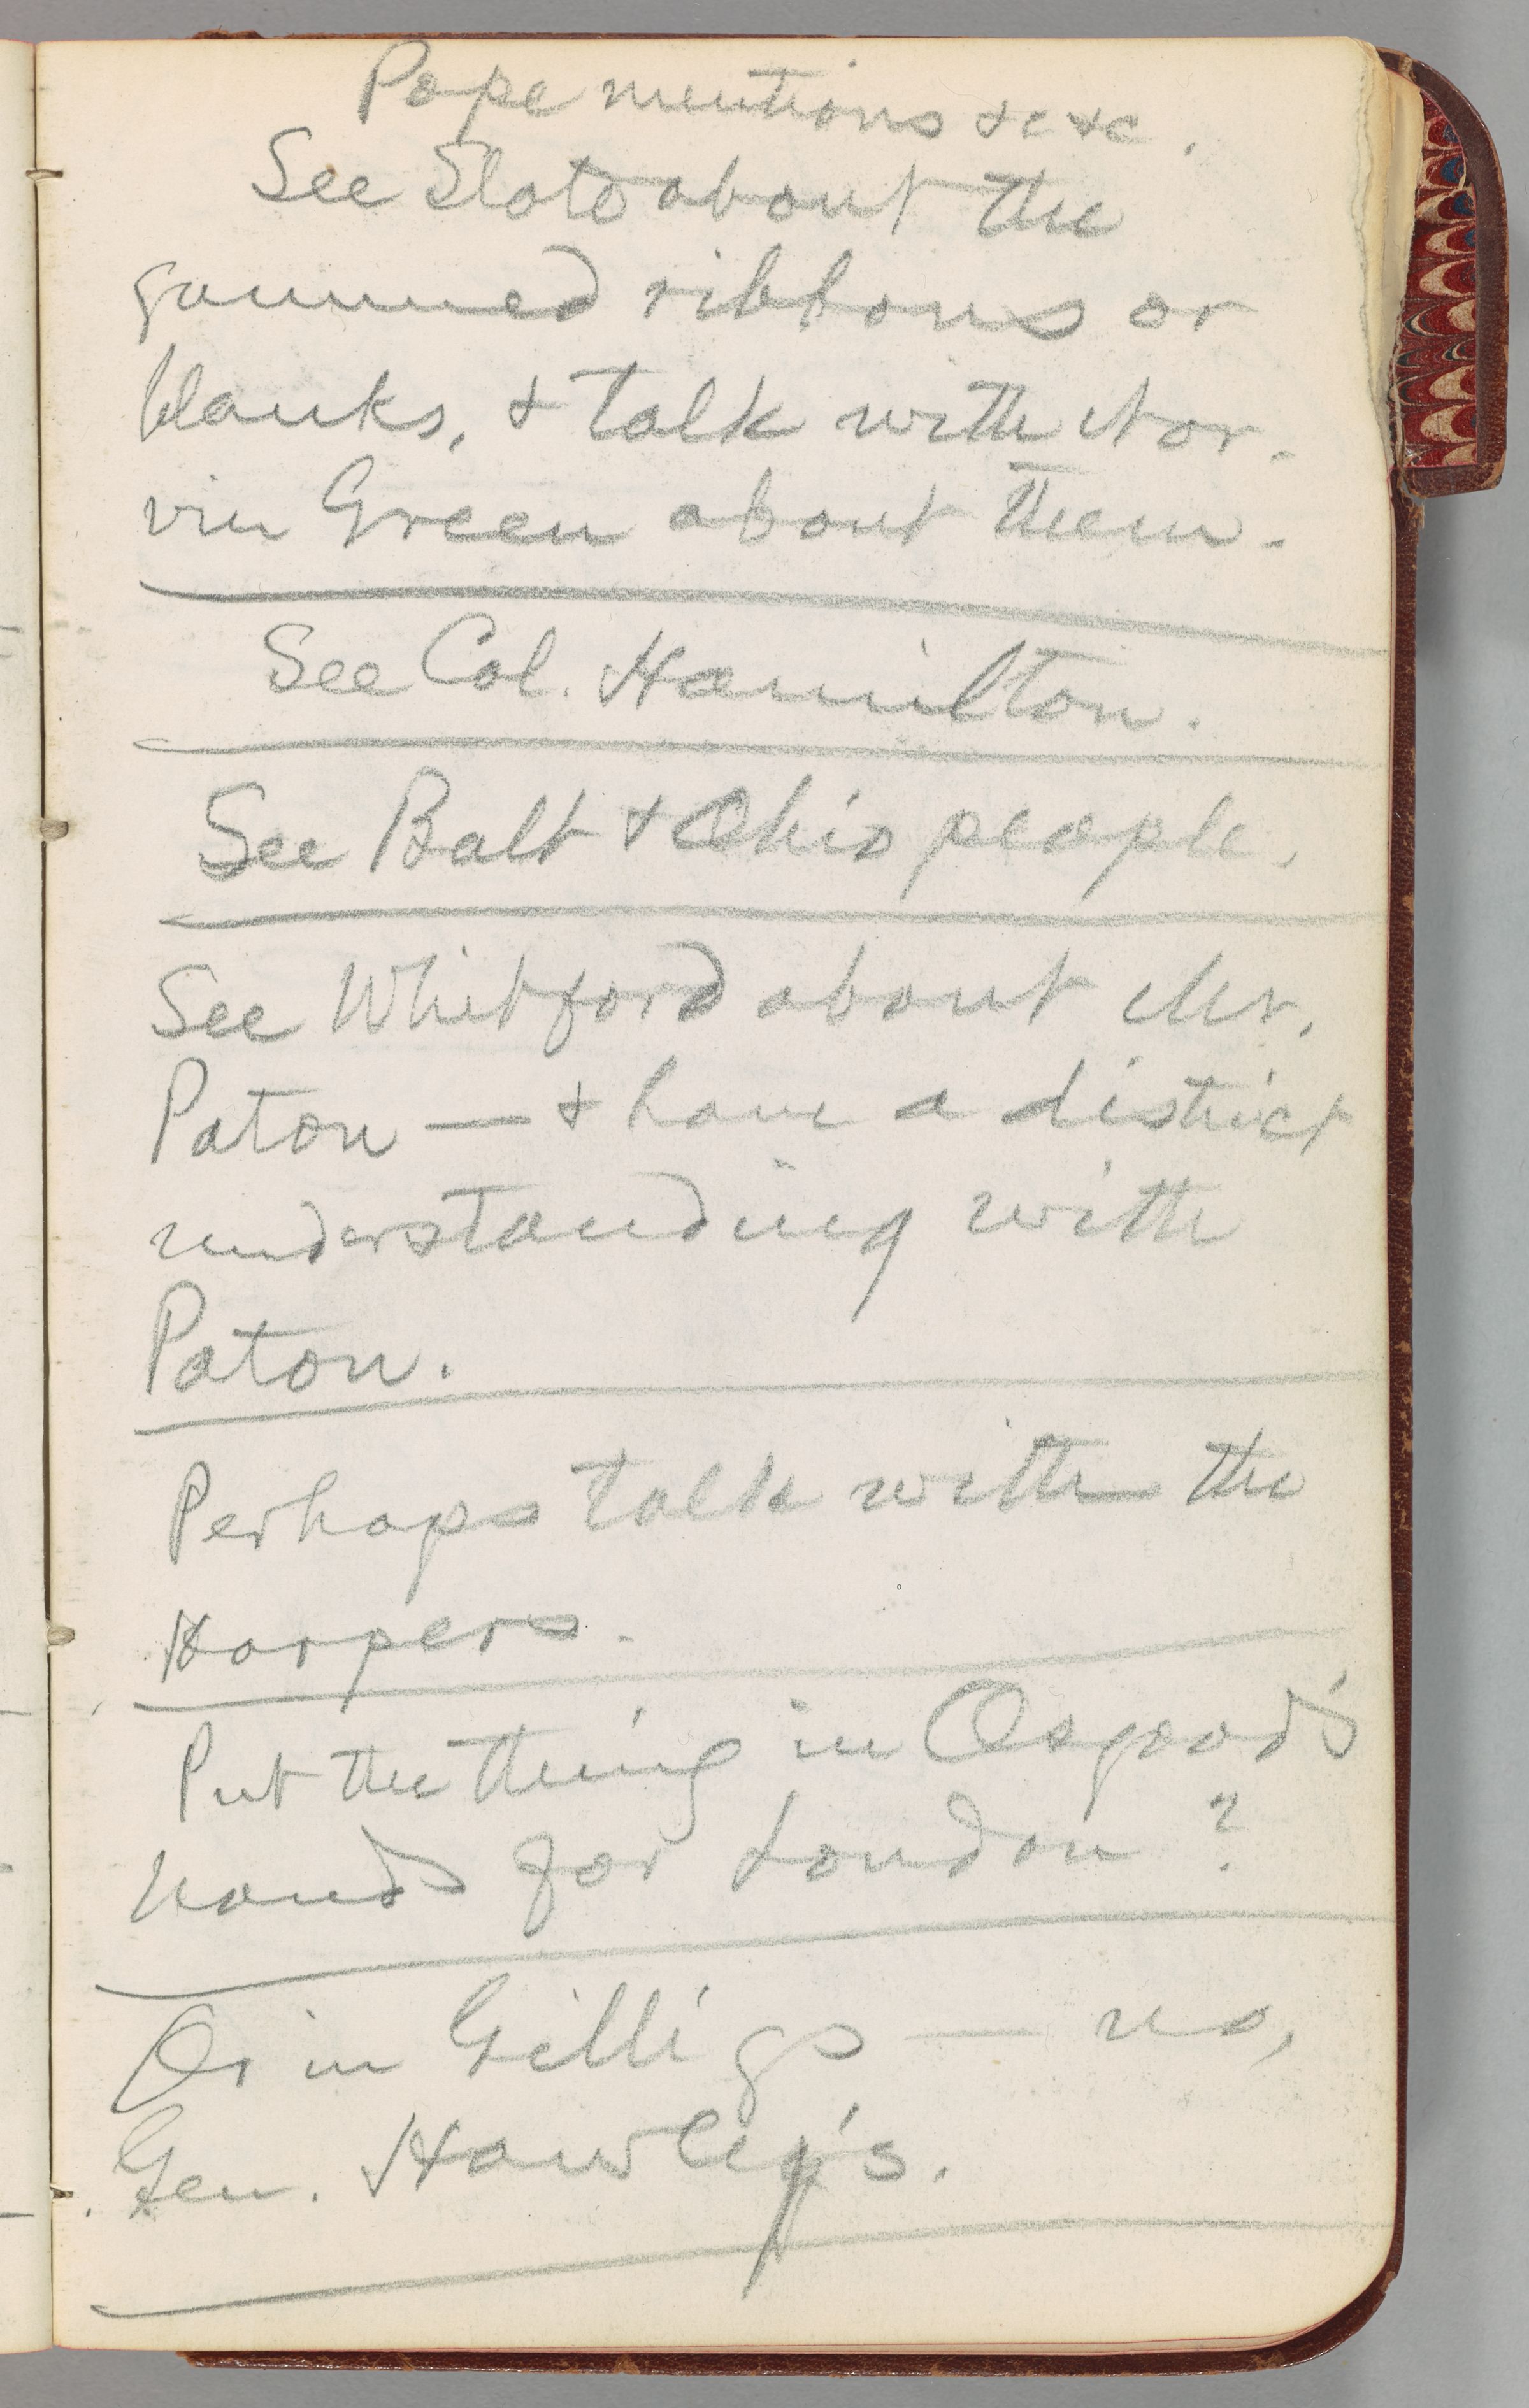 Pope mentions &c &c.
See Slote about the
gummed ribbons or
blanks, & talk with Nor-
vin Green about them.
See Col. Hamilton.
See Balt & Ohio people.
See Whitford about Mr.
Paton — & have a district
understanding with
Paton.
Perhaps talk with the
Harpers.
Put the thing in Osgood's
hands for London?
Or in Gilligs — no,
Gen. Hawley's.